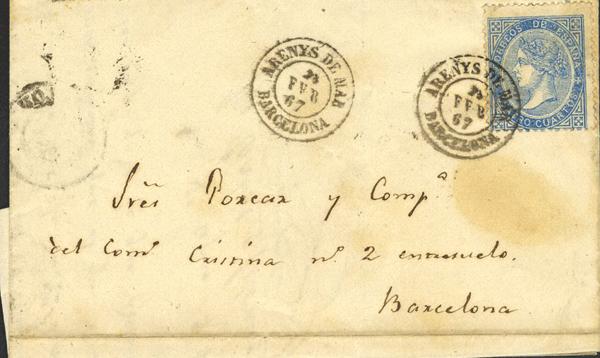 ARENYS DE MAR
FEB
67
BARCELONA
ARENYS DE MAR
FEB
67
BARCELONA
CORREOS DE ESPAÑA
CUARTOS
Sres y Compª
del Comº Cristina nº 2 entresuelo.
Barcelona